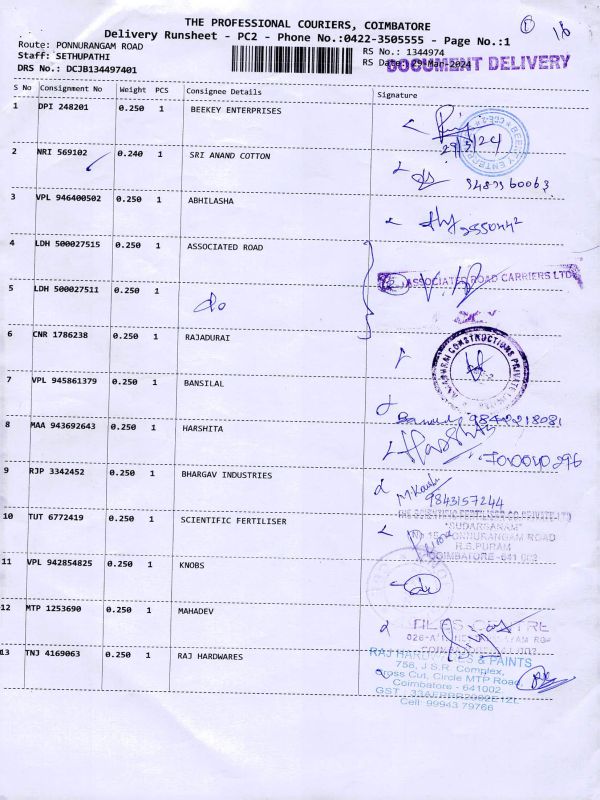 THE PROFESSIONAL COURIERS, COIMBATORE
Delivery Runsheet - PC2 - Phone No.:0422-3505555 - Page No.:1
Route: PONNURANGAM ROAD
RS No.: 1344974
Staff: SETHUPATHI
RS Date: 29-Mar-2024
DOCUMENT DELIVERY
DRS No.: DCJB134497401
S No Consignment No Weight PCS Consignee Details Signature
1 DPI 248201 0.250 1 BEEKEY ENTERPRISES
29/3/24
2 NRI 569102 0.240 1 SRI ANAND COTTON
3 VPL 946400502 0.250 1 ABHILASHA
4 LDH 500027515 0.250 1 ASSOCIATED ROAD
ASSOCIATED ROAD CARRIERS LTD
5 LDH 500027511 0.250 1
do
6 CNR 1786238 0.250 1 RAJADURAI
7 VPL 945861379 0.250 1 BANSILAL
9842218081
8 MAA 943692643 0.250 1 HARSHITA
9 RJP 3342452 0.250 1 BHARGAV INDUSTRIES
9843157244
10 TUT 6772419 0.250 1 SCIENTIFIC FERTILISER
THE SCIENTIFIC FERTILISER CO PRIVATE LTD
"SUDARSANAM"
PONNURANGAM ROAD
R.S.PURAM
COIMBATORE - 641 002
11 VPL 942854825 0.250 1 KNOBS
12 MTP 1253690 0.250 1 MAHADEV
13 TNJ 4169063 0.250 1 RAJ HARDWARES
RAJ HARDWARES & PAINTS
756, J.S.R. Complex,
Cross Cut, Circle MTP Road,
Coimbatore - 641002
Cell: 99943 79766